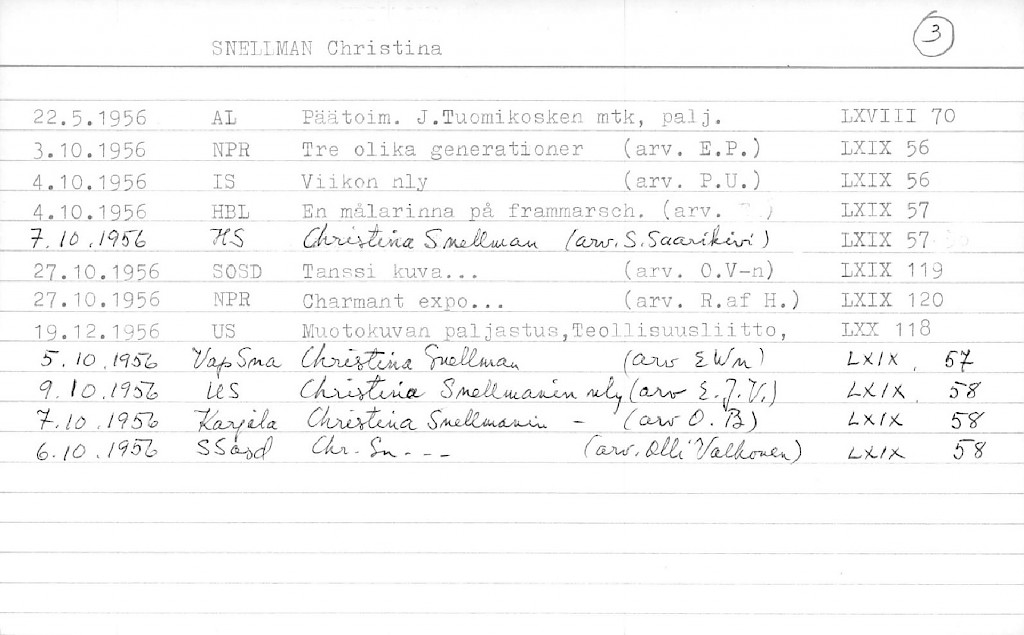 SNELLMAN Christina 3
22.5.1956 AL Päätoim. J.Tuomikosken mtk, palj. LXVIII 70
3.10.1956 NPR Tre olika generationer (arv. E.P.) LXIX 56
4.10.1956 IS Viikon nly (arv. P.U.) LXIX 56
4.10.1956 HBL En målarinna på frammarsch. (arv. ) LXIX 57
7.10.1956 HS Christina Snellman (arv. S. Saarikivi) LXIX 57
27.10.1956 SOSD Tanssi kuva... (arv. O.V-n) LXIX 119
27.10.1956 NPR Charmant expo... (arv. R.af H.) LXIX 120
19.12.1956 US Muotokuvan paljastus,Teollisuusliitto, LXX 118
5.10.1956 VapSna Christina Snellman (arv EWn) LXIX, 57
9.10.1956 US Christina Snellmanin nly (arv E.J.V.) LXIX 58
7.10.1956 Karjala Christina Snellmanin - (arv O.B) LXIX 58
6.10.1956 SSosd Chr. Sn--- (arv. Olli Valkonen) LXIX 58